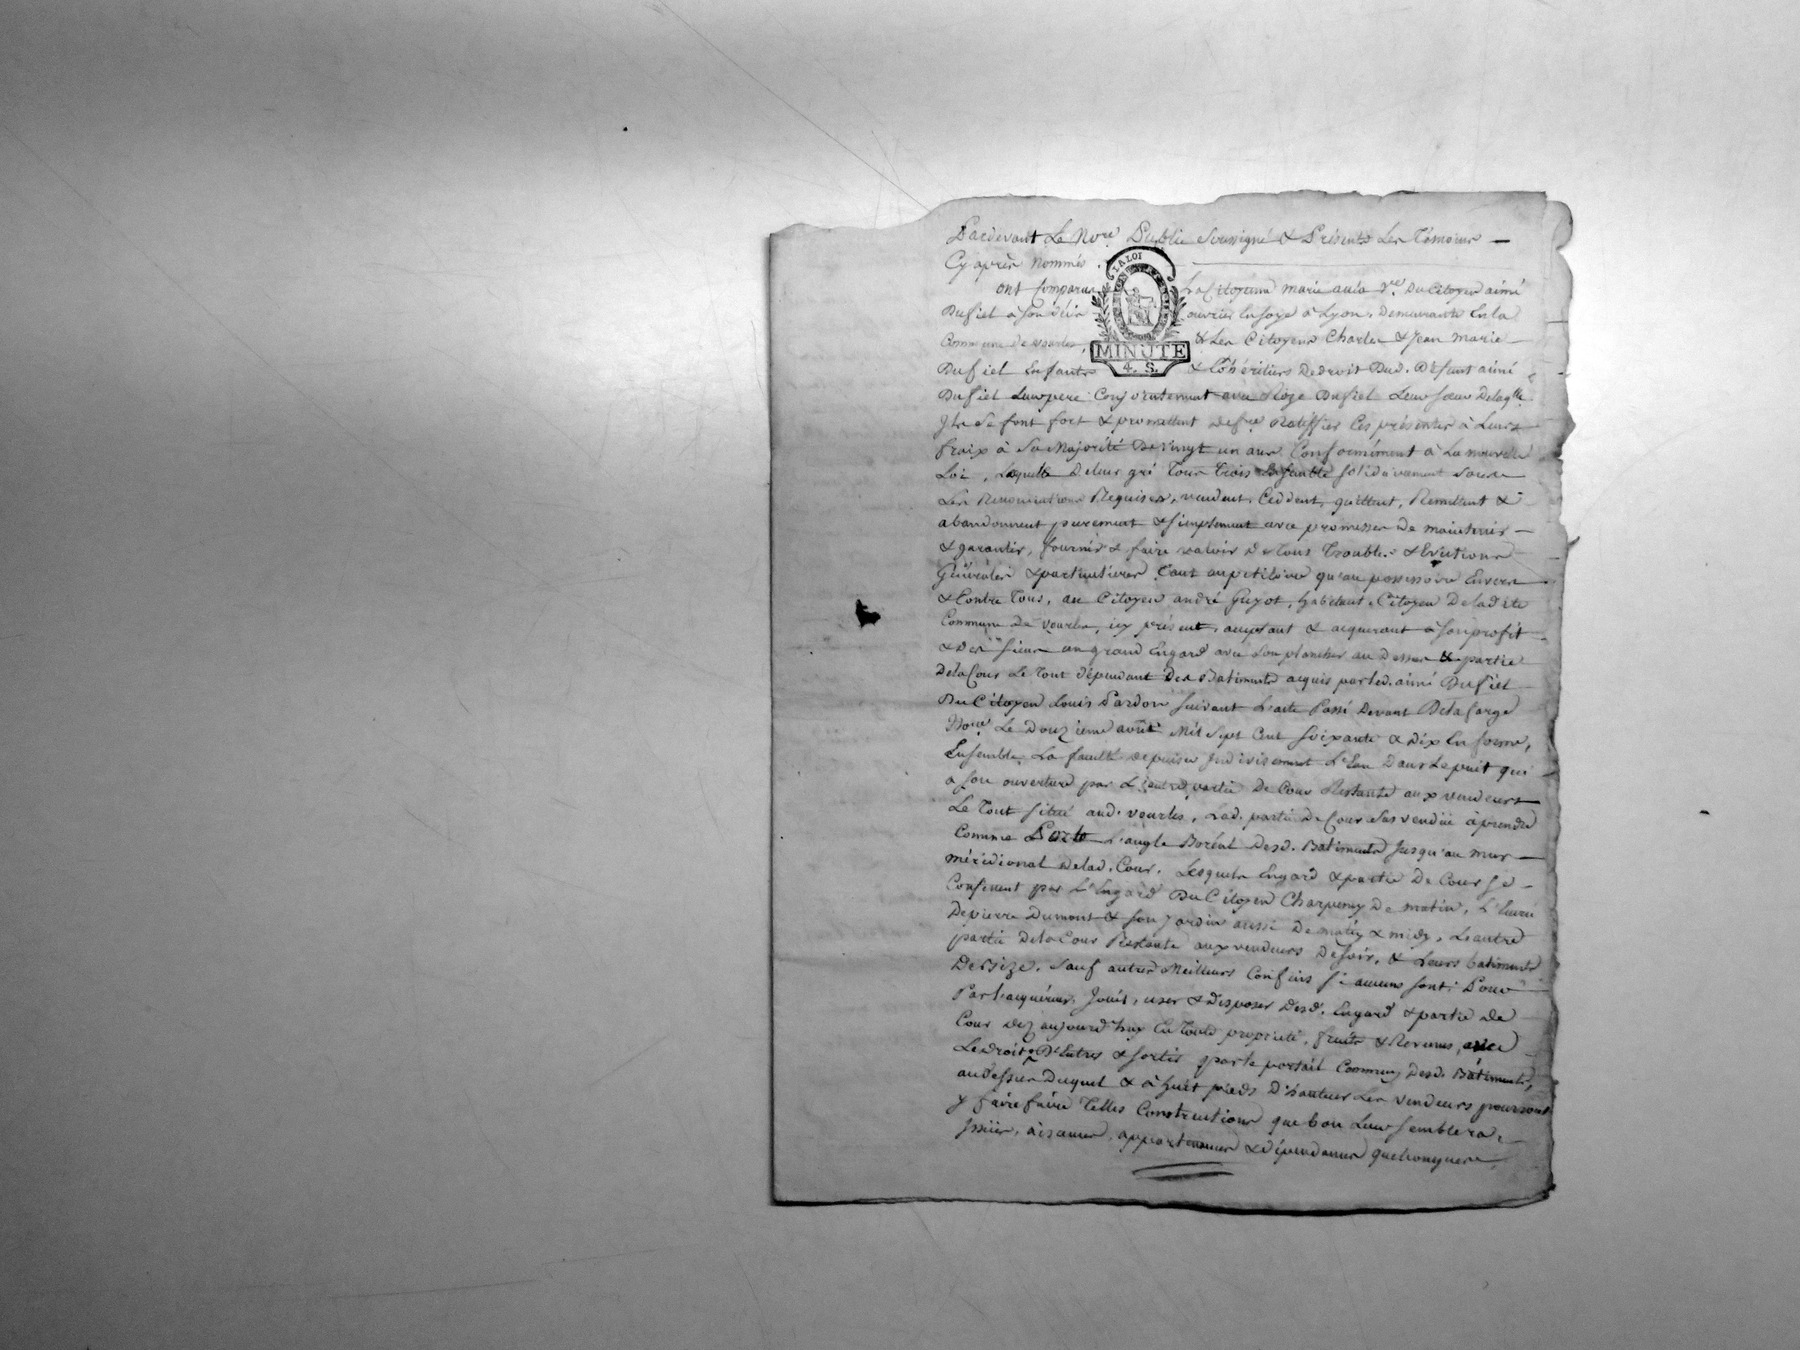 Pardevant Le Nore Public Soussigné & Présents Les Témoins
Cy après nommés.
LA LOI
MINUTE
4. S.
ont Comparus La Citoyenne marie aula Ve. Du Citoyen aimé
Dufiel a son décès ouvrier En soye à Lyon, Demeurante En la
Commune de vourles, & Les Citoyens Charles & Jean Marie
Dufiel Enfants & Cohéritiers De droit Dud. Défunt aimé
Dufiel Leur pere Conjointement avec Dufiel Leur soeur De laqlle
Ils Se font fort & promettent de fre Ratiffier Ces présentes à Leurs
fraix à Sa Majorité De Vingt un ans, Conformément à La nouvelle
Loi, De leur gré Tous trois Ensemble solidairement sous
Les Renonciations Requises, vendent, Ceddent, quittent, Remettent &
abandonnent purement & simplement avec promesses de maintenir
& garantir, fournir & faire valoir De tous Troubles & Evictions
Générales & particulieres Tant au petitoire qu'au possessoire Envers
& Contre Tous, au Citoyen andré Guyot, habitant & Citoyen De ladite
Commune De Vourles, icy présent, acceptant & acquerant à son profit
& Des siens un grand Engard avec son plancher au Dessus & partie
De la Cour Le Tout dépendant Des Batiments acquis par led. aimé Dufiel
Du Citoyen Louis Pardon suivant L'acte Passé Devant Delafarge
Nore Le Douzieme avril Mil Sept Cent soixante & Dix En forme,
Ensemble La faculté de puiser Indivisement L'Eau Dans Le puit qui
a son ouverture par L'autre partie De Cour Restante aux vendeurs
Le Tout situé aud. vourles, Lad. partie De Cour à prendre
Comme Porte L'angle Boréal Desd. Batiments Jusqu'au mur
méridional De lad. Cour. Lesquels Engard & partie De Cour se
Confinent par L'Engard Du Citoyen Charpenay De matin, L'
De pierre Dumont & son Jardin aussi De matin & midy, L'autre
partie De la Cour Restante aux vendeurs De soir, & Leurs batiments
De Bize, Sauf autres Meilleurs Confins si aucuns sont. Pour
Par L'acquéreur, Jouir, user & Disposer Desd. Engard & partie de
Cour dez aujourd'huy En Toute propriété, fruits & Revenus, avec
Le droit D'Entrer & sortir par le portail Commun Desd. Bâtiments,
au Dessus Duquel & à huit pieds D'hauteur Les Vendeurs pourront
y faire faire Telles Constructions que bon Leur semblera,
aisances, appartenances & dépendances quelconques